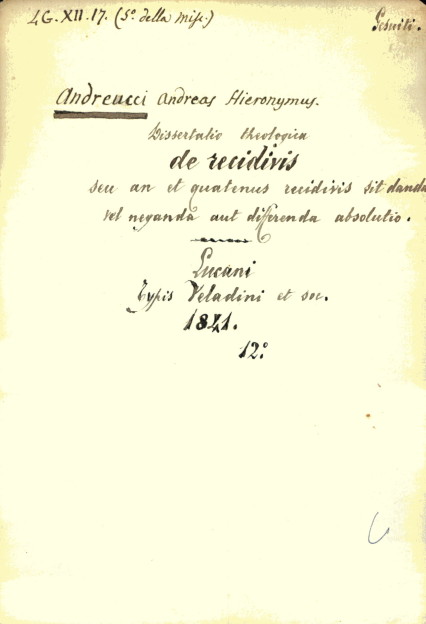 LG. XII. 17. (5º della misc.)
Gesuiti.
Andreucci Andreas Hieronymus.
Dissertatio theologica
de recidivis
seu an et quatenus recidivis sit danda
vel neganda aut differenda absolutio.
Lucani
Typis Veladini et soc.
1841.
12.º